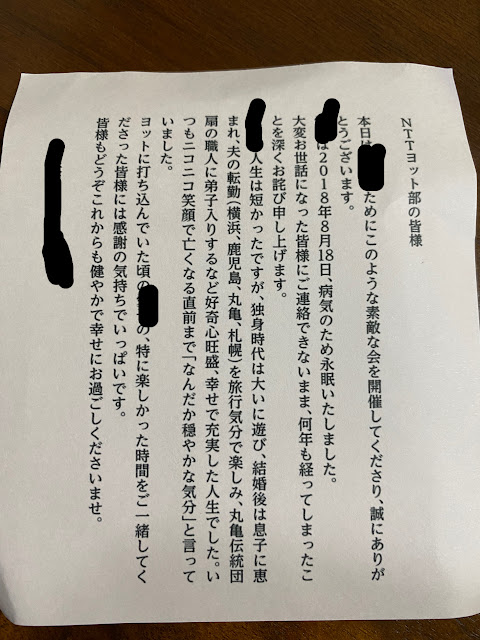 NTTヨット部の皆様
本日は ためにこのような素敵な会を開催してくださり、誠にありが
とうございます。
は2018年8月18日、病気のため永眠いたしました。
大変お世話になった皆様にご連絡できないまま、何年も経ってしまったこ
とを深くお詫び申し上げます。
人生は短かったですが、独身時代は大いに遊び、結婚後は息子に恵
まれ、夫の転勤(横浜、鹿児島、丸亀、札幌)を旅行気分で楽しみ、丸亀伝統団
扇の職人に弟子入りするなど好奇心旺盛、幸せで充実した人生でした。い
つもニコニコ笑顔で亡くなる直前まで「なんだか穏やかな気分」と言って
いました。
ヨットに打ち込んでいた頃の の、特に楽しかった時間をご一緒してく
ださった皆様には感謝の気持ちでいっぱいです。
皆様もどうぞこれからも健やかで幸せにお過ごしくださいませ。